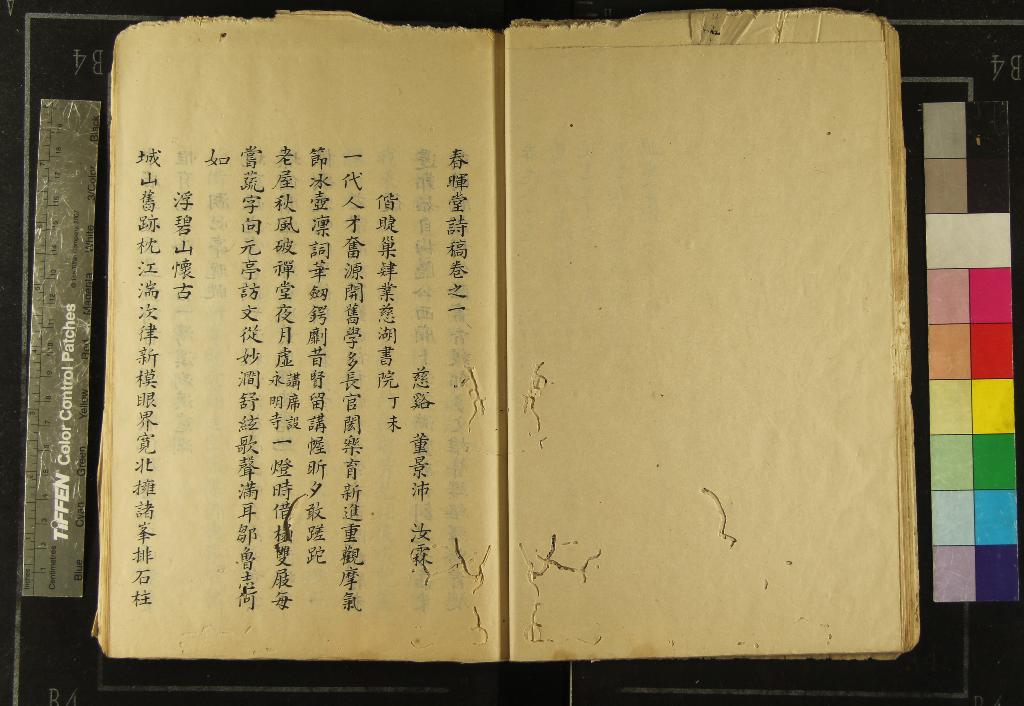 春暉堂詩稿卷之一
慈谿 董景沛 汝霖
偕睫巢肄業慈湖書院丁未
一代人才奮源開舊學多長官閎樂育新進重觀摩氣
節冰壺凜詞華劒鍔劘昔賢留講幄昕夕敢蹉跎
老屋秋風破禪堂夜月虛講席設永明寺一燈時借 雙屐每
當蔬字向元亭訪文從妙澗舒絃歌聲滿耳鄒魯 何
如
浮碧山懷古
城山舊跡枕江湍次律新模眼界寬北擁諸峯排石柱
B4
B4
B4
TIFFEN Color Control Patches
Centimetres
Inches
Blue
Cyan
Green
Yellow
Red
Magenta
White
3/Color
Black